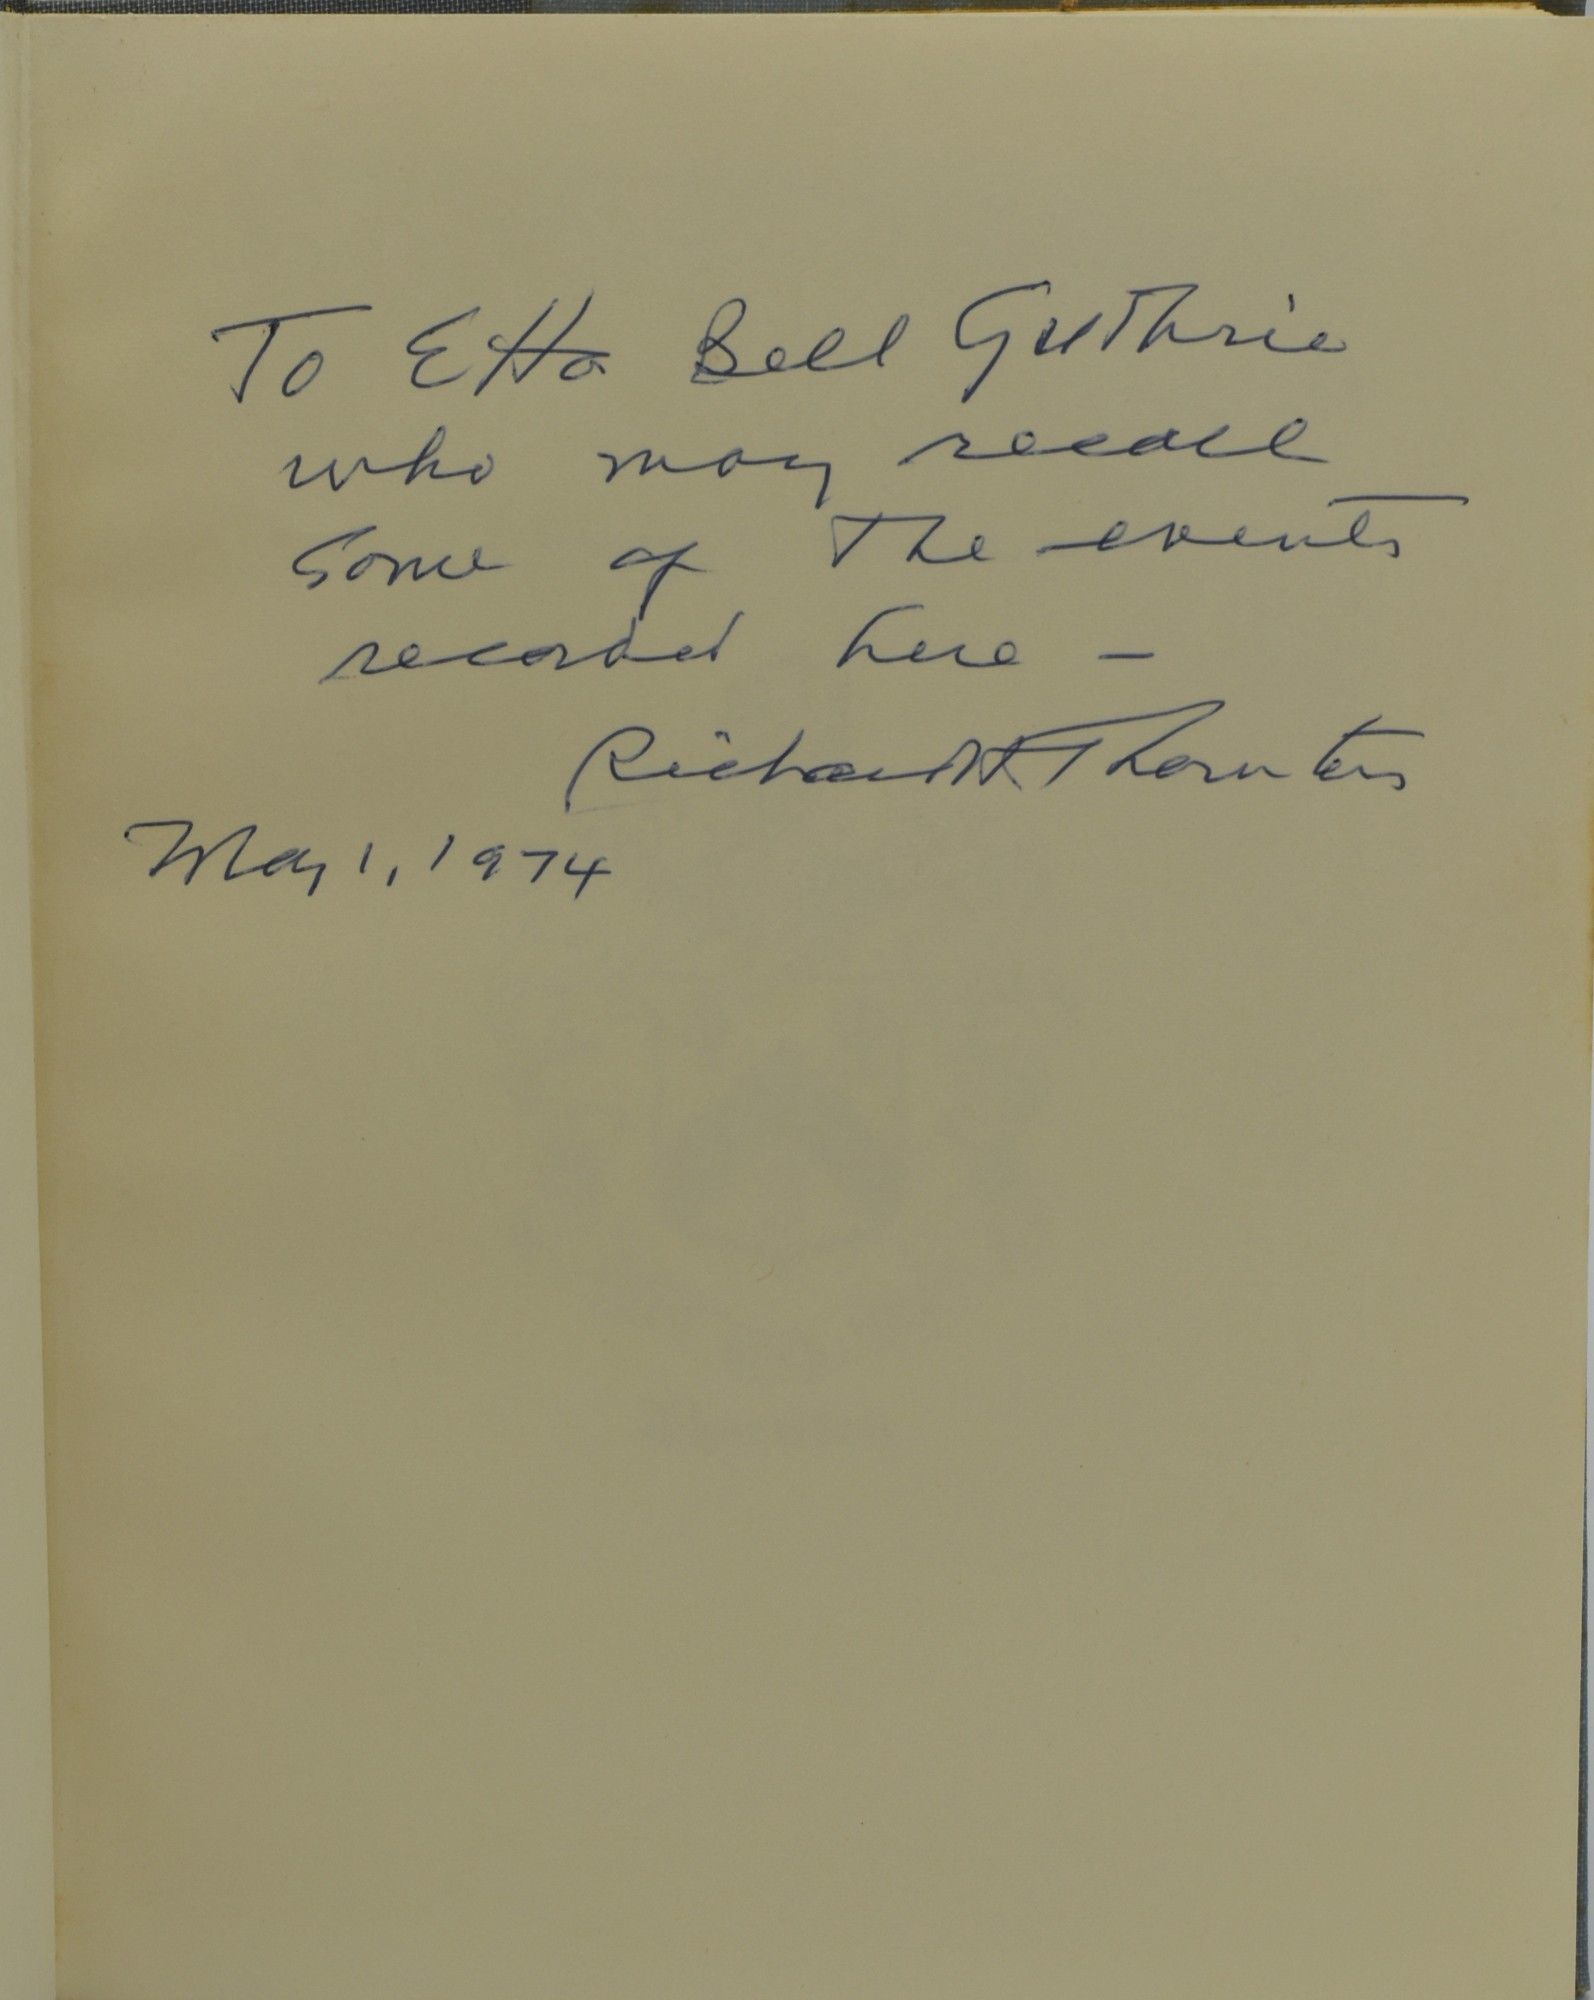 To Etta Bell Guthrie
who may recall
some of the events
recorded here –
Richard H Thornton
May 1, 1974